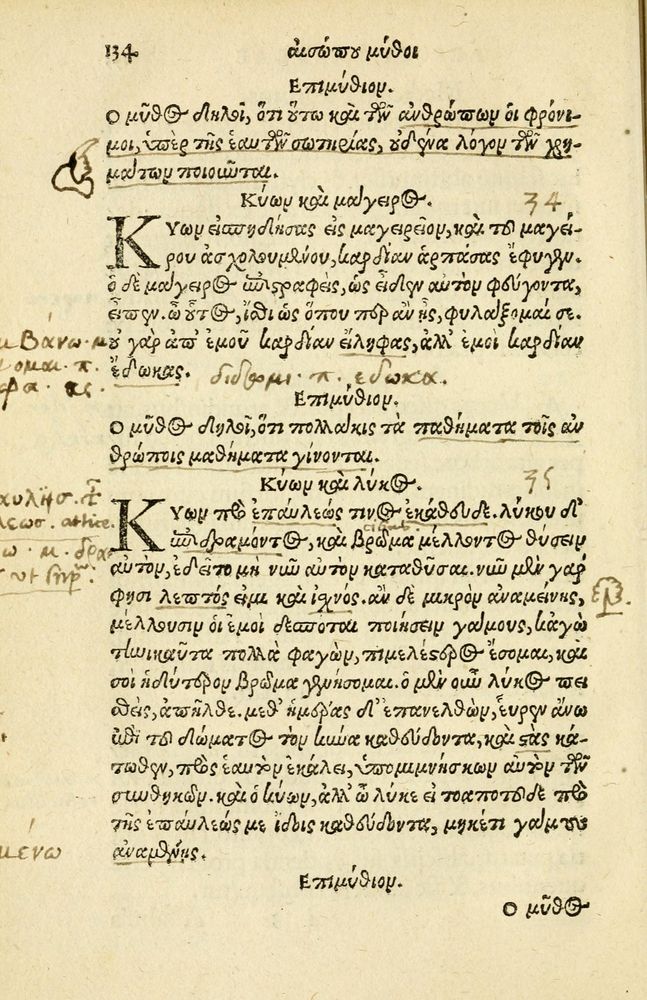 134 αἰσώπου μῦθοι
Ἐπιμύθιον.
Ο μῦθος δηλοῖ, ὅτι οὕτω καὶ τῶν ἀνθρώπων οἱ φρόνι-
μοι, ὑπὲρ τῆς ἑαυτῶν σωτηρίας, οὐδένα λόγον τῶν χρη-
μάτων ποιοῦνται.
Κύων καὶ μάγειρος. 34
Κύων εἰσπηδήσας εἰς μαγειρεῖον, καὶ τοῦ μαγεί-
ρου ἀσχολουμένου, καρδίαν ἁρπάσας ἔφυγεν.
ὁ δὲ μάγειρος ἐπιστραφεὶς, ὡς εἶδεν αὐτὸν φεύγοντα,
εἶπεν. ὦ οὗτος, ἴσθι ὡς ὅπου περ ἂν ᾖς, φυλάξομαί σε.
οὐ γὰρ ἀπ' ἐμοῦ καρδίαν εἴληφας, ἀλλ' ἐμοὶ καρδίαν
ἔδωκας. διδωμι . π . εδωκα.
Ἐπιμύθιον.
Ο μῦθος δηλοῖ, ὅτι πολλάκις τὰ παθήματα τοῖς ἀν
θρώποις μαθήματα γίνονται.
Κύων καὶ λύκος. 35
Κύων πρὸ ἐπαύλεώς τινος ἐκάθευδε. λύκου δ'
ἐπιδραμόντος, καὶ βρῶμα μέλλοντος θύσειν
αὐτὸν, ἐδεῖτο μὴ νῦν αὐτὸν καταθῦσαι. νῦν μὲν γάρ
φησι λεπτός εἰμι καὶ ἰσχνός. ἂν δὲ μικρὸν ἀναμείνῃς,
μέλλουσιν οἱ ἐμοὶ δεσπόται ποιήσειν γάμους, κἀγὼ
τηνικαῦτα πολλὰ φαγὼν, πιμελέστερος ἔσομαι, καὶ
σοὶ ἡδύτερον βρῶμα γενήσομαι. ὁ μὲν οὖν λύκος πει
σθεὶς, ἀπῆλθε. μεθ' ἡμέρας δ' ἐπανελθὼν, εὗρεν ἄνω
ἐπὶ τοῦ δώματος τὸν κύνα καθεύδοντα, καὶ στὰς κά-
τωθεν, πρὸς ἑαυτὸν ἐκάλει, ὑπομιμνήσκων αὐτὸν τῶν
συνθηκῶν. καὶ ὁ κύων, ἀλλ' ὦ λύκε εἰ τοαποτοῦδε πρὸ
τῆς ἐπαύλεώς με ἴδοις καθεύδοντα, μηκέτι γάμους
ἀναμένῃς.
Ἐπιμύθιον.
Ο μῦθος